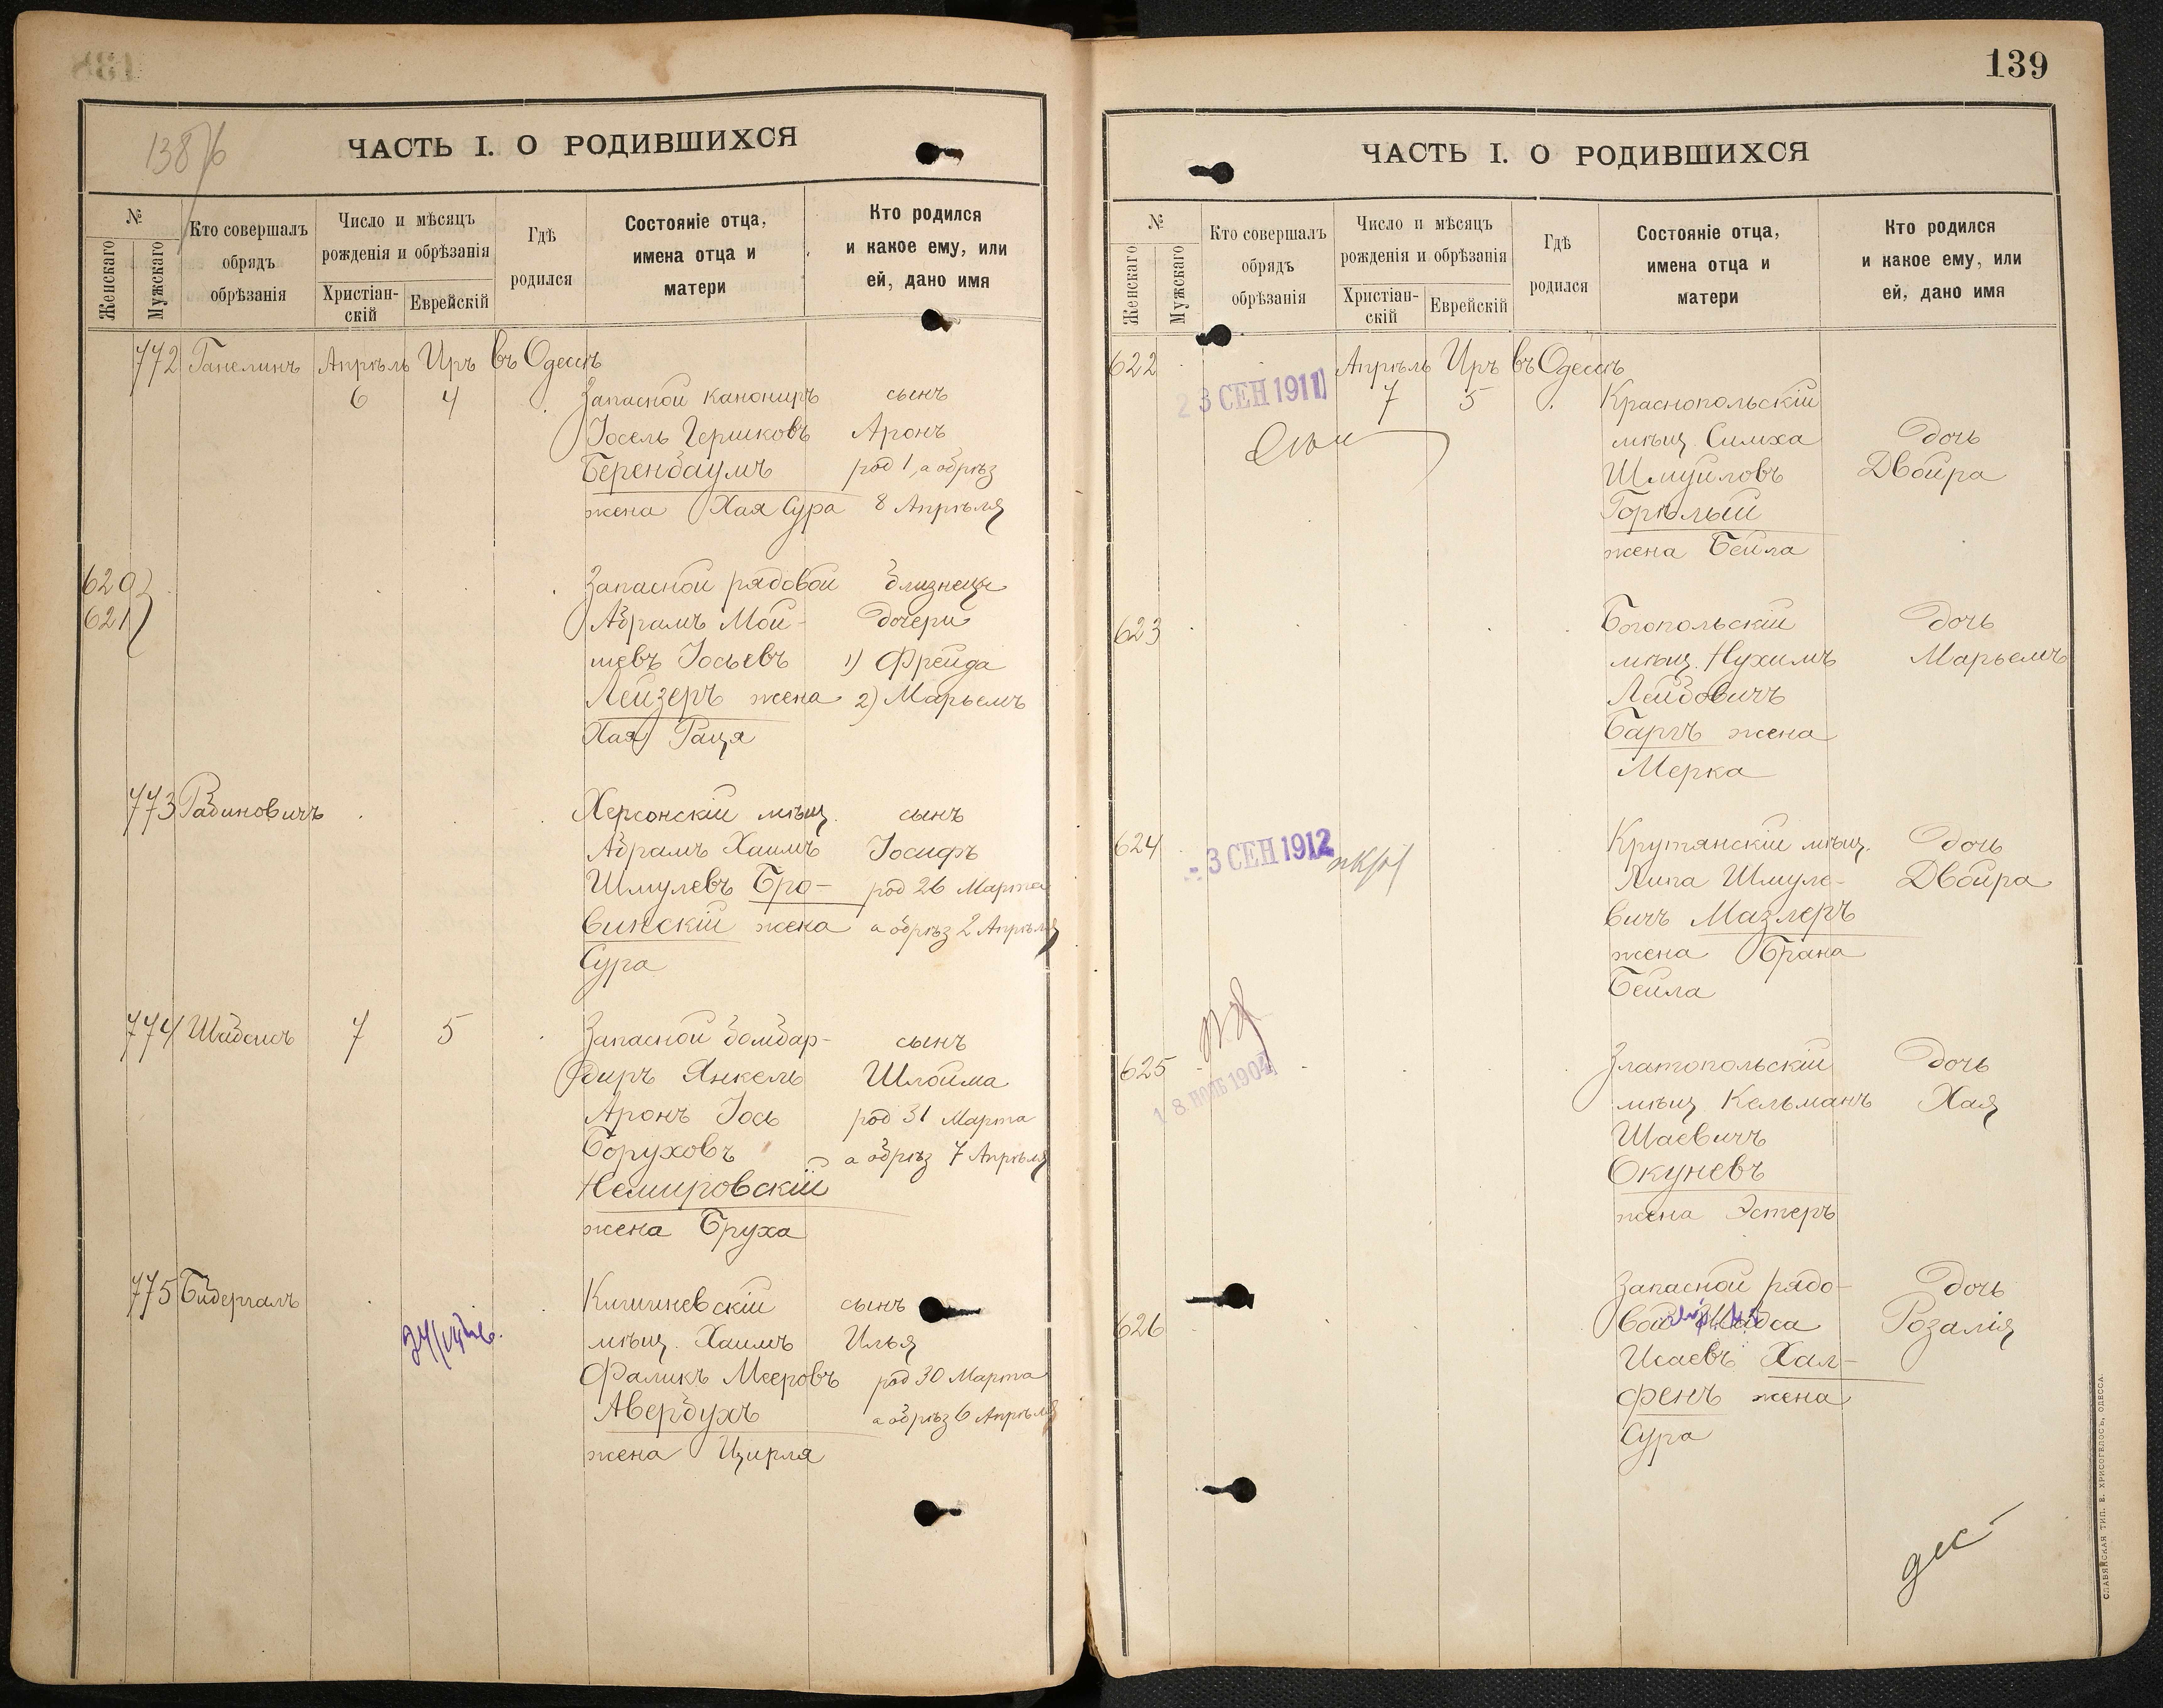 138
ЧАСТЬ I. О РОДИВШИХСЯ
№
Женскаго
Мужскаго
Кто совершалъ
обрядъ
обрѣзанія
Число и мѣсяцъ
рожденія и обрѣзанія
Христіан-
скій
Еврейскій
Гдѣ
родился
Состояніе отца,
имена отца и
матери
Кто родился
и какое ему, или
ей, дано имя
772 Ганелинъ Апрѣль Иръ въ Одессѣ
6 4 Запасной канониръ сынъ
Іосель Гершковъ Аронъ
Беренбаумъ род 1, а обрѣз
жена Хая Сура 8 Апрѣля
620
621
Запасной рядовой близнецы
Абрамъ Мой- дочери
шевъ Іосьевъ 1) Фрейда
Лейзеръ жена 2) Марьемъ
Хая Раця
773 Рабиновичъ Херсонскій мѣщ. сынъ
Абрамъ Хаимъ Іосифъ
Шмулевъ Бро- род 26 Марта
винскій жена а обрѣз 2 Апрѣля
Сура
774 7 5 Запасной бомбар- сынъ
диръ Янкель Шлойма
Аронъ Іось род 31 Марта
Боруховъ а обрѣз 7 Апрѣля
Немировскій
жена Бруха
775 Бидерганъ Кишиневскій сынъ
мѣщ. Хаимъ Илья
Фаликъ Мееровъ род 30 Марта
Авербухъ а обрѣз 6 Апрѣля
жена Цирля
139
ЧАСТЬ I. О РОДИВШИХСЯ
№
Женскаго
Мужскаго
Кто совершалъ
обрядъ
обрѣзанія
Число и мѣсяцъ
рожденія и обрѣзанія
Христіан-
скій
Еврейскій
Гдѣ
родился
Состояніе отца,
имена отца и
матери
Кто родился
и какое ему, или
ей, дано имя
622 Апрѣль Иръ въ Одессѣ
23 СЕН 1911 7 5 Краснопольскій
мѣщ. Симха Дочь
Шмуиловъ Двойра
Горѣлый
жена Бейла
623 Богопольскій Дочь
мѣщ. Нухимъ Марьемъ
Лейбовичъ
Баргъ жена
Мерка
624 - 3 СЕН 1912 Крутянскій мѣщ. Дочь
Липа Шмуле- Двойра
вичъ Мазлеръ
жена Брана
Бейла
625 18 1904 Златопольскій Дочь
мѣщ. Кельманъ Хая
Шаевичъ
Окуневъ
жена Эстеръ
626 Запасной рядо- Дочь
вой Розалія
Исаевъ Хал-
фенъ жена
Сура
СЛАВЯНСКАЯ ТИП. Е. ХРИСОГЕЛОСЪ, ОДЕССА.